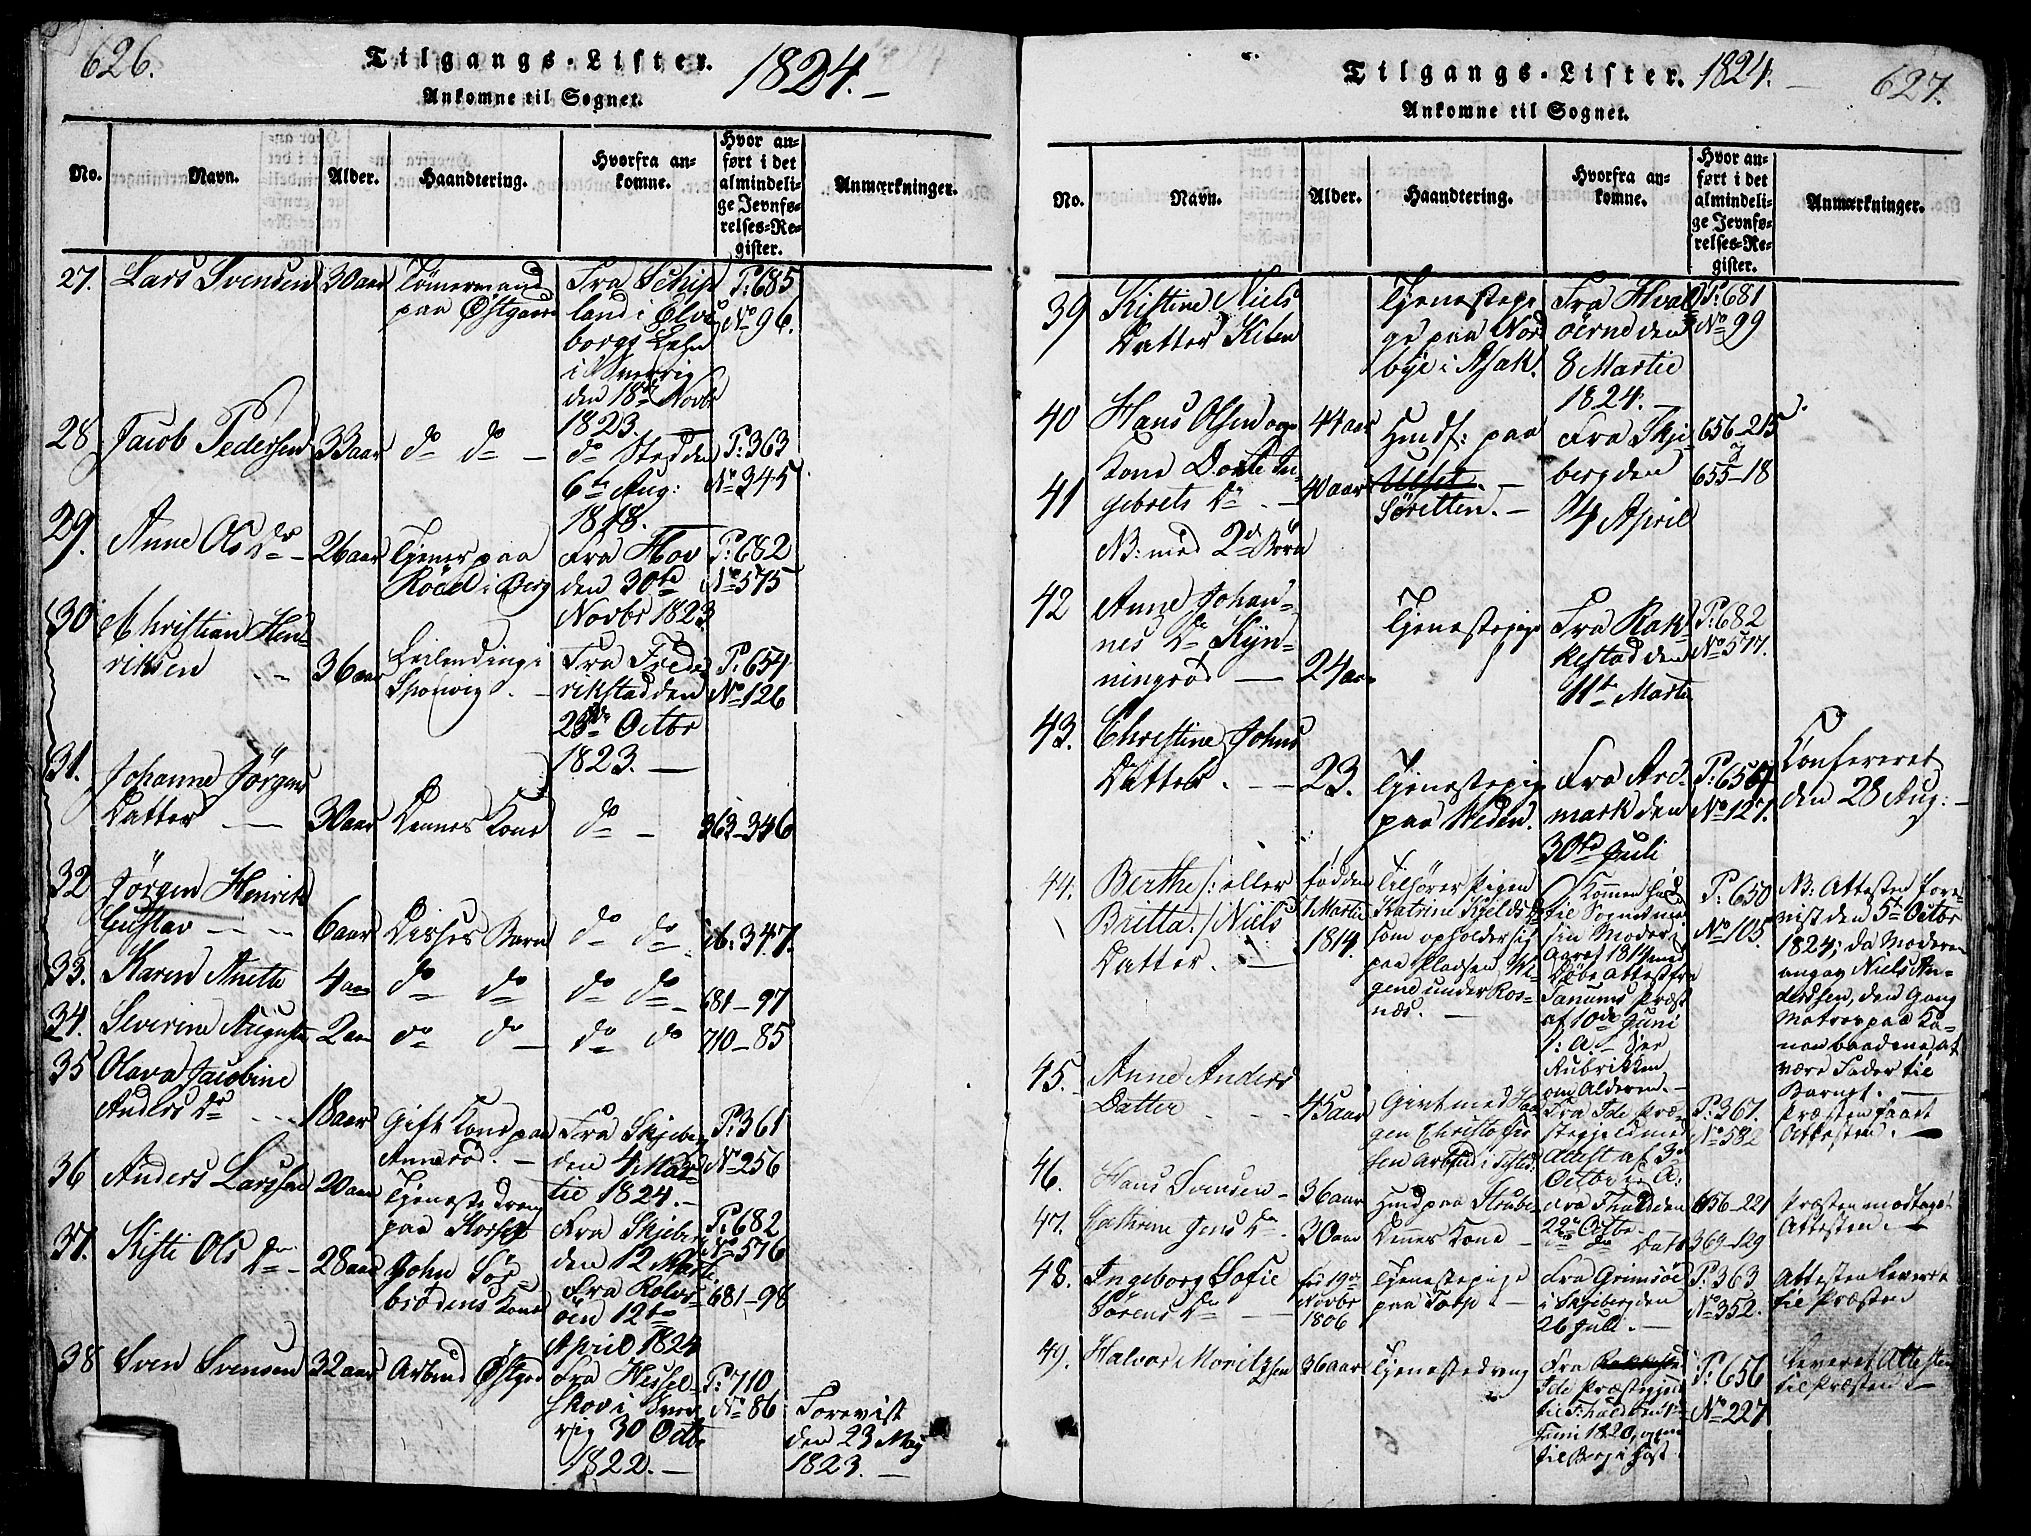 626.
Tilgangs-Lister. 1824.
Ankomne til Sognet.
No. Navn. Alder. Haandtering. Hvorfra ankomne. Hvor anført i det almindelige Jevnførelses-Register. Anmærkninger.
27. Lars Svensen 30 aar Tømermand
paa Østgaard
Fra
land i Elvs
borgs Lehn
i Sverrig
den 18de Novbr
1823.
P: 685
No 96.
28 Jacob Pedersen 33 aar do do
do Sted den
6te Aug:
1818.
P: 363
No 345
29. Anne Ols Dr 26 aar Tjener paa
Röed i Berg
Fra Hov
den 30te
Novbr 1823
P: 682
No 575
30 Christian Hen
riksen 36 aar Leilending i
Sponvig
Fra Frede
rikstad den
23de Octbr
1823.
P: 654
No 126
31. Johanne Jörgens
Datter 30 aar Dennes Kone do 363-346
32 Jörgen Henrik
Gustav 6 aar Disses Barn do do ib: 347.
33. Karen Anette 4 aar do do do do 681-97
34. Severine Auguste 2 aar do do do do 710-85
35 Olava Jacobine
Anders Dr 18 aar Gift Kone paa
Annerød.
Fra Skjeberg
den 4 Mar
tie 1824.
P: 361
No 256
36 Anders Larssen 20 aar Tjeneste Dreng
paa Korset
Fra Skjeberg
den 12 Marti
P: 682
No 576
37. Kisti Ols Dr 28 aar John Sös
brödens Kone
Fra Rolvs
öen 12te
April 1824
681-98
38 Sven Svensen 32 aar Arbeid Østgrd
Fra Hessel
skov i Sver
rig 30 Octbr
1822.
P: 710
No 86
Forevist
den 23 May
1823.
Tilgangs-Lister. 1824. 627.
Ankomne til Sognet.
No. Navn. Alder. Haandtering. Hvorfra ankomne. Hvor anført i det almindelige Jevnførelses-Register. Anmærkninger.
39 Kistine Niels
Datter Kilen
Tjenestepi
ge paa Nord
bye i Asak.
Fra Hval
öerne den
8 Martie
1824.
P: 681
No 99
40 Hans Olsen og
Kone Dorte In
41 gebrets Dr
NB: med 2de Börn
44 aar
40 aar
Huusf: paa
Ulset.
Søretten.
Fra Skje
berg den
14 April
656-215
og
655-18
42 Anne Johan
nes Dr Kyn
ningröd 24 aar
Tjenestepige
Fra Rak
kestad den
11te Marti
P: 682
No 577.
43. Christine Johns
Datter. 23. Tjenestepige
paa Weden.
Fra Ard
mark den
30te Juli
P: 654
No 127.
Confereret
den 28 Aug:
44. Berthe /: eller
Britta :/ Niels
Datter.
födden
1 Martie
1814.
Tilhörer Pigen
Katrine Kjelds Dr
som opholder sig
paa Pladsen Vi
gene under Ros
næs.
Kommen her
til Sognet med
sin Moder i
Aaret 1819 med
Döbe Attest fra
Tanums Præst
af 10de Juni
s: A. See
Rubrikken
om Alderen.
P: 650
No 105.
NB: Attesten fore
vist den 5te Octbr
1824; da Moderen
angav Niels An
dersen, den Gang
Matros paa Ka
non baadene, at
være Fader til
Barnet.
45. Anne Anders
Datter 45 aar Givt med Haa
gen Christofer
sen Arbeid i Tisted.
Fra Ide Præ
stegjeld med
Attest af 3de
Octbr s: A:
P: 367.
No 582
Præsten faaet
Attesten.
46. Hans Svensen 36 aar Huusd paa Strube
Fra Fhald den
22de Octbr
656-221
Præsten modtaget
Attesten.
47. Cathrine Jens Dr. 30 aar Dennes Kone do Dato 369-129
48. Ingeborg Sofie
Sörens Dr
född 19de
Novbr
1806
Tjenestepige
paa Torp
Fra Grimsöe
i Skjeberg den
26 Juli.
P: 363
No 352.
Attesten leveret
til Præsten
49. Halvor Moritzsen 36 aar Tjenestedreng
Fra Rakkestad
Ide Præstegjeld
til Fhald den 4de
Juni 1820, og nu
til Berg i Høst
P: 656
No 227
Leveret Attesten
til Præsten.